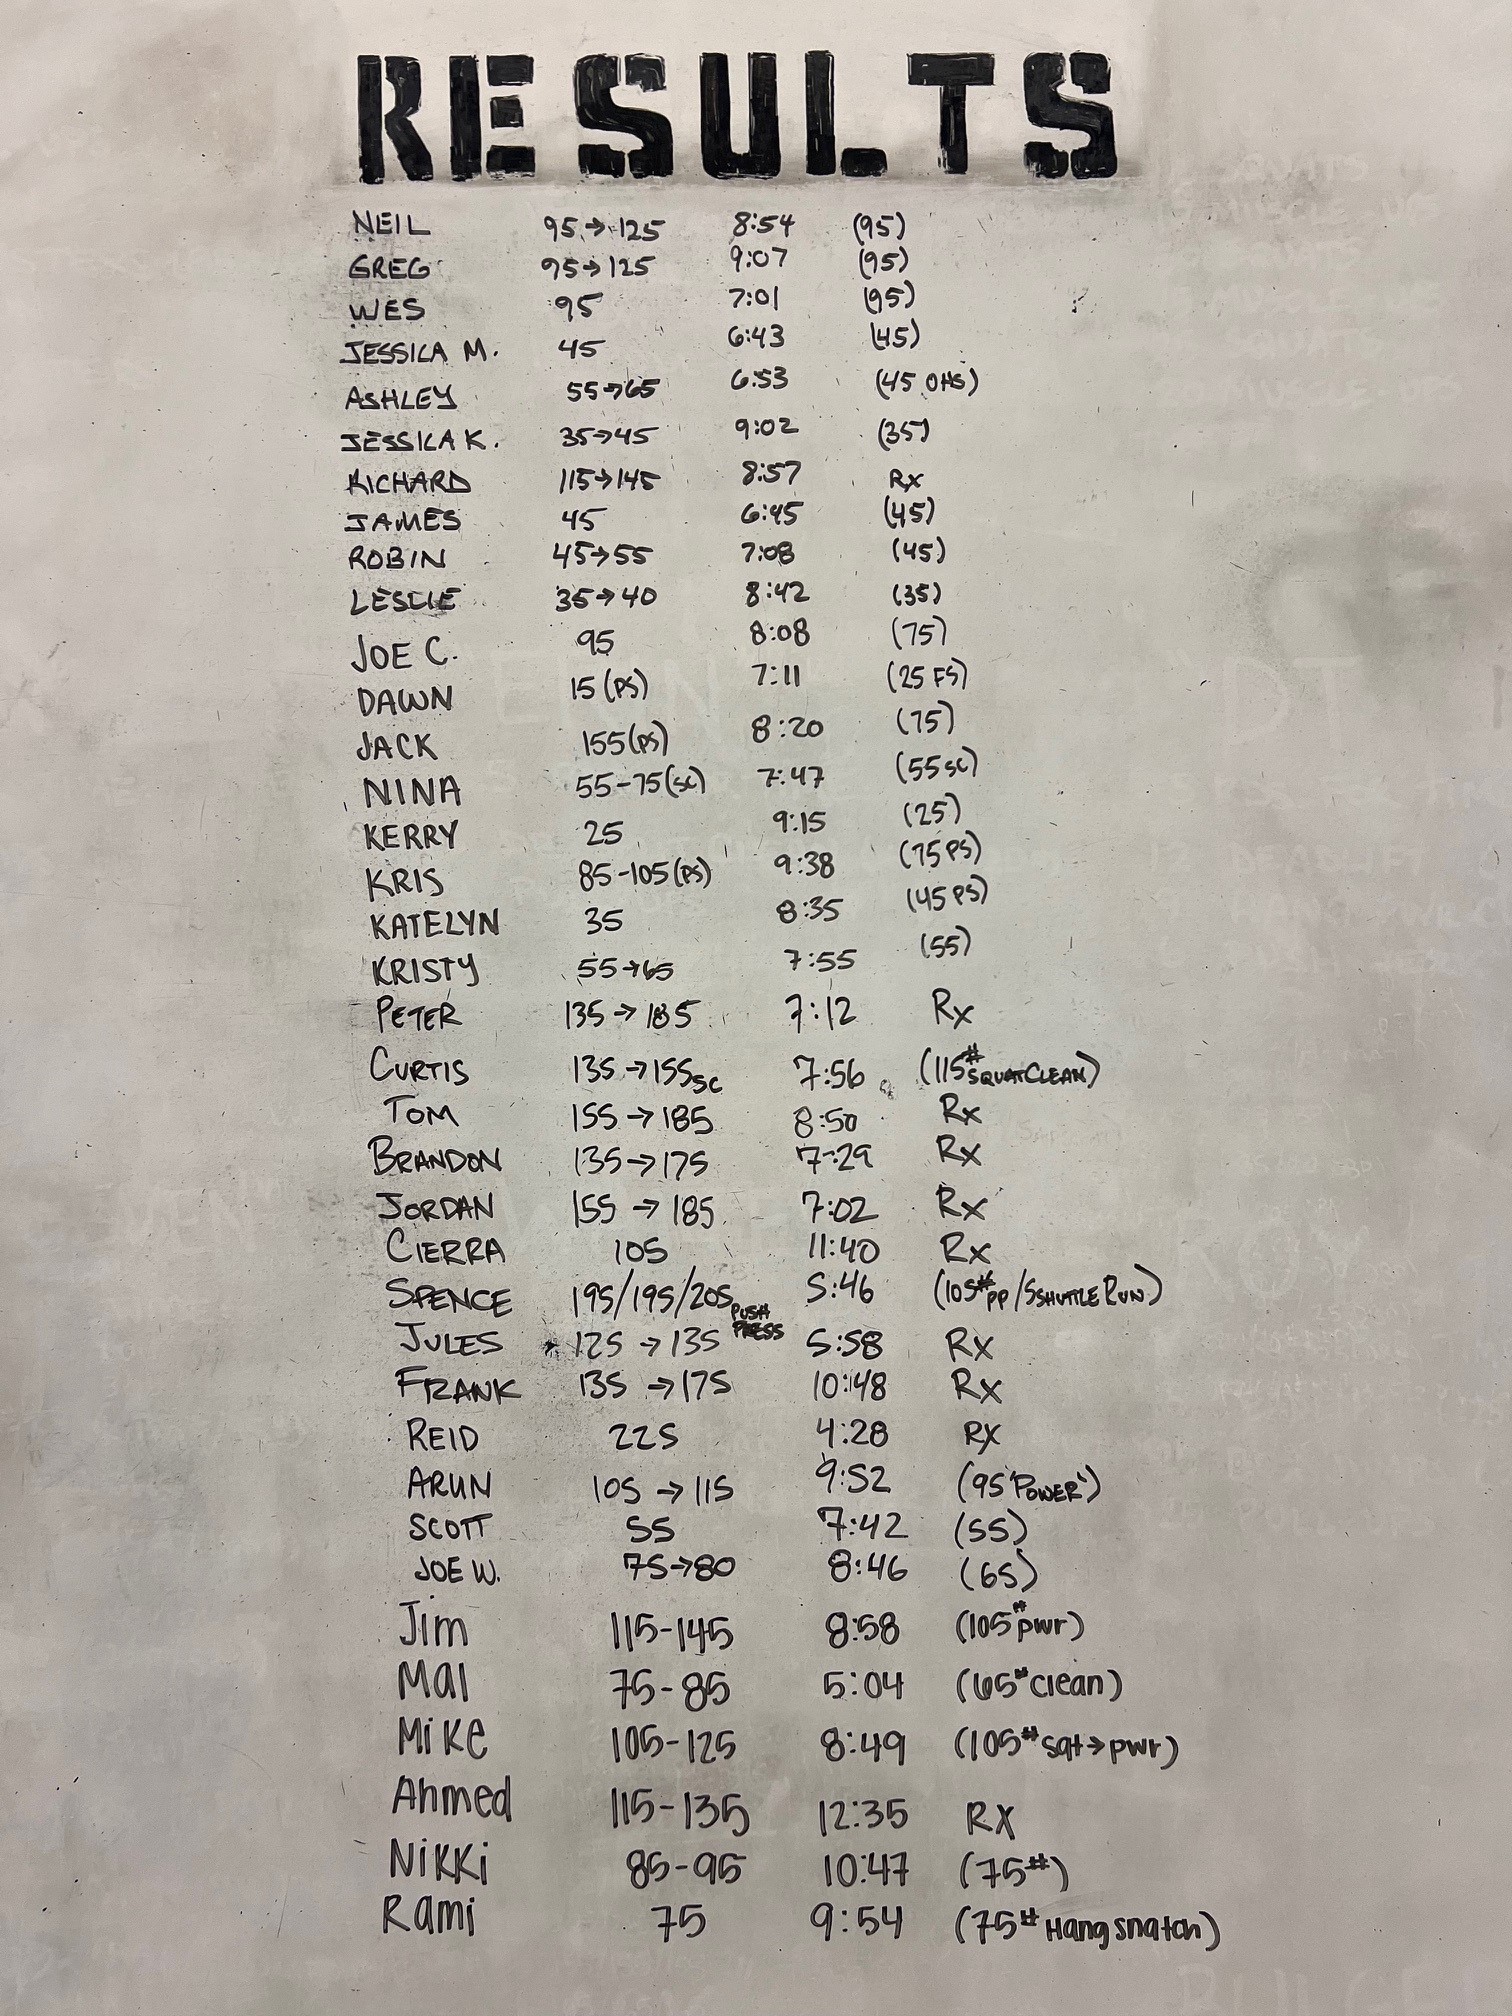 RESULTS
NEIL 95→125 8:54 (95)
GREG 95→125 9:07 (95)
WES 95 7:01 (95)
JESSICA M. 45 6:43 (45)
ASHLEY 55→65 6:53 (45 OHS)
JESSICA K. 35→45 9:02 (35)
RICHARD 115→145 8:57 Rx
JAMES 45 6:45 (45)
ROBIN 45→55 7:08 (45)
LESLIE 35→40 8:42 (35)
JOE C. 95 8:08 (75)
DAWN 15(PS) 7:11 (25 FS)
JACK 155(PS) 8:20 (75)
NINA 55-75(SC) 7:47 (55 SC)
KERRY 25 9:15 (25)
KRIS 85-105(PS) 9:38 (75 PS)
KATELYN 35 8:35 (45 PS)
KRISTY 55→65 7:55 (55)
PETER 135→185 7:12 Rx
CURTIS 135→155 SC 7:56 (115# SQUAT CLEAN)
TOM 155→185 8:50 Rx
BRANDON 135→175 7:29 Rx
JORDAN 155→185 7:02 Rx
CIERRA 105 11:40 Rx
SPENCE 195/195/205 PUSH PRESS 5:46 (105# PP/S SHUTTLE RUN)
JULES 125→135 5:58 Rx
FRANK 135→175 10:48 Rx
REID 225 4:28 RX
ARUN 105→115 9:52 (95 'POWER')
SCOTT 55 7:42 (55)
JOE W. 75→80 8:46 (65)
Jim 115-145 8:58 (105# pwr)
Mal 75-85 5:04 (65# clean)
Mike 105-125 8:49 (105# sqt→pwr)
Ahmed 115-135 12:35 RX
Nikki 85-95 10:47 (75#)
Rami 75 9:54 (75# Hang snatch)